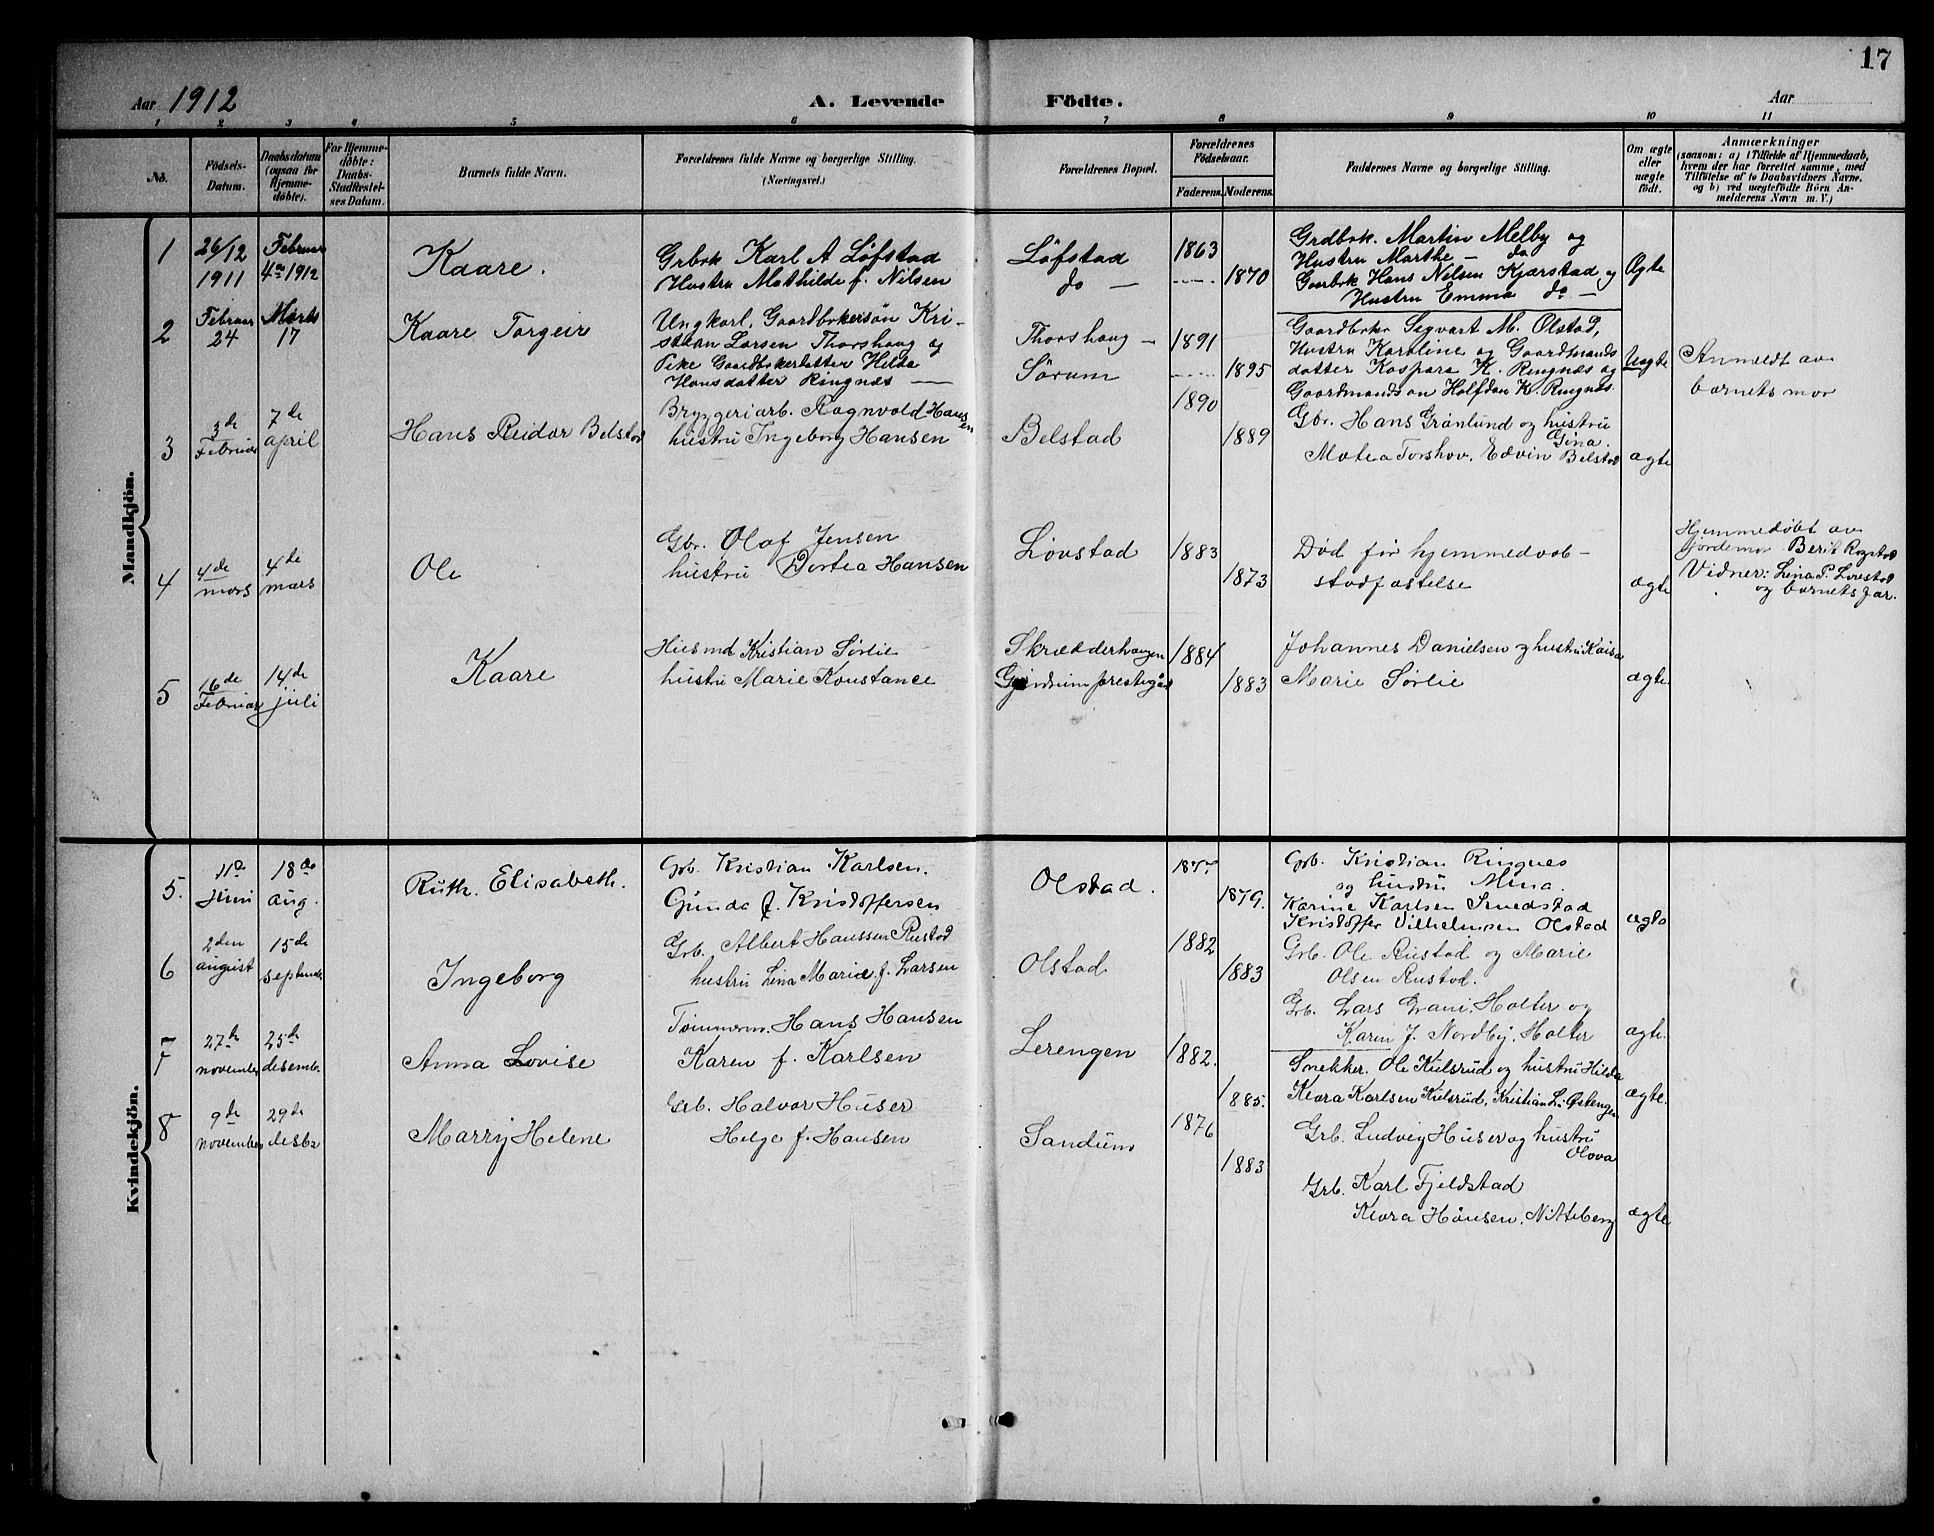 17
Aar 1912 A. Levende Födte. Aar
1 2 3 4 5 6 7 8 9 10 11
No. Födsels-Datum. Daabsdatum (ogsaa for Hjemme-döbte). For Hjemme-döbte: Daabs-Stadfæstel-ses Datum. Barnets fulde Navn. Forældrenes fulde Navne og borgerlige Stilling. (Næringsvei.) Forældrenes Bopæl. Forældrenes Födselsaar. Faderens. Moderens. Faddernes Navne og borgerlige Stilling. Om ægte eller uægte födt. Anmærkninger (saasom: a) i Tilfælde af Hjemmedaab, hvem der har forrettet samme, med Tilföielse af to Daabsvidners Navne. og b) ved uægtefödte Börn An-melderens Navn m. V.)
Mandkjön.
1 26/12 1911 Februar 4de 1912 Kaare.
Grbrk Karl A Løfstad
Hustru Mathilde f. Nilsen
Løfstad
do —
1863
1870
Grdbrk. Martin Melby og
Hustru Marthe — do
Gaarbrk Hans Nilsen Kjærstad og
Hustru Emma do —
Ægte
2 Februar 24 Marts 17 Kaare Torgeir
Ungkarl, Gaardbrkersön Kri-
stian Larsen Thorshaug og
Pike Gaardbrkerdatter Hilda
Hansdatter Ringnæs —
Thorshaug —
Sørum
1891
1895
Gaardbrkr Sigvart M. Olstad,
Hustru Karoline og Gaardmands
datter Kaspara K. Ringnæs og
Gaardmandssøn Halfdan K. Ringnæs.
Uægte
Anmeldt av
barnets mor
3 3de Februar 7de april Hans Reidar Belstad
Bryggeriarb. Ragnvold Hansen
hustru Ingeborg Hansen
Belstad
1890
1889
Gbr. Hans Grønlund og hustru
Gina.
Matea Torshov, Edvin Belstad
ægte
4 4de mars 4de mars Ole
Gbr. Olaf Jensen
hustru Dortea Hansen
Løvstad
1883
1873
Død før hjemmedaab-
stadfæstelse
ægte
Hjemmedøbt av
jordemor Berit Rogstad
Vidner: Lina P. Lovestad
og barnets far.
5 16de Februar 14de juli Kaare
Husmd Kristian Sørlie
hustru Marie Konstance
Skrædderhaugen
Gjerdrum prestegård
1884
1883
Johannes Danielsen og hustru Kaisa
Marie Sørlie
ægte.
Kvindekjön.
5. 11te Juni 18de aug. Ruth. Elisabeth.
Grb. Kristian Karlsen.
Gunda f. Kristoffersen
Olstad.
1877.
1879.
Grb. Kristian Ringnes
og hustru Mina.
Karine Karlsen Smedstad
Kristoffer Vilhelmsen Olstad
ægte
6 2den august 15de septembr Ingeborg
Grb. Albert Hanssen Rustad
hustru Lina Marie f. Larsen
Olstad
1882
1883
Grb. Ole Rustad og Marie
Olsen Rustad.
Grb. Lars Grani, Holter og
Karin J. Nordby, Holter
ægte.
7 27de november 25de desembr Anna Lovise
Tømmerm. Hans Hansen
Karen f. Karlsen
Lerengen
1882.
1885.
Snekker. Ole Kulsrud og hustru Hilda
Klara Karlsen Kulsrud, Kristian L. Østengen
ægte.
8 9de november 29de desbr Marry Helene
Grb. Halvor Huser
Helge f. Hansen
Sandum
1876
1883
Grb. Ludvig Huser og hustru
Olova
Grb. Karl Fjeldstad
Klara Hansen, Nitteberg
ægte